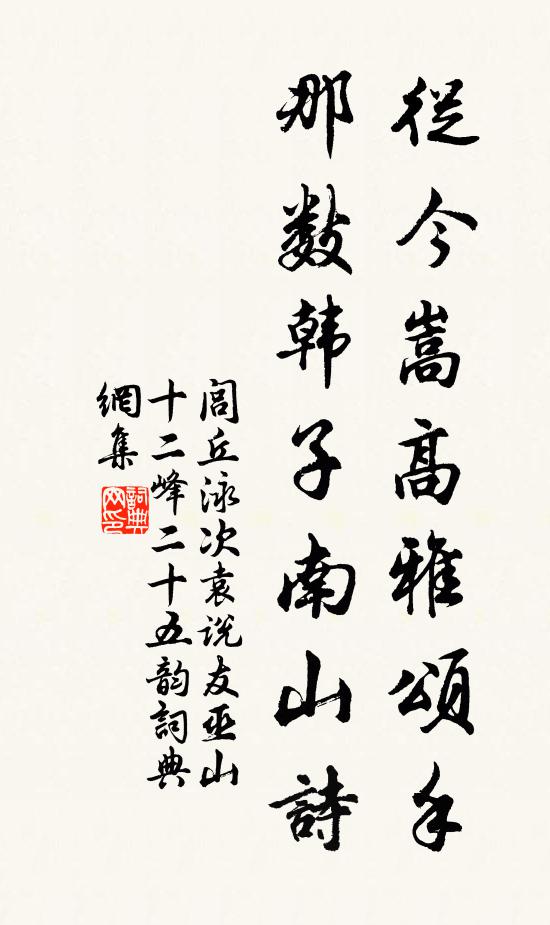 從今嵩高雅頌手
那数韩子南山詩
闾丘泳次袁说友巫山
十二峰二十五韵詞典
網集
詞典网印